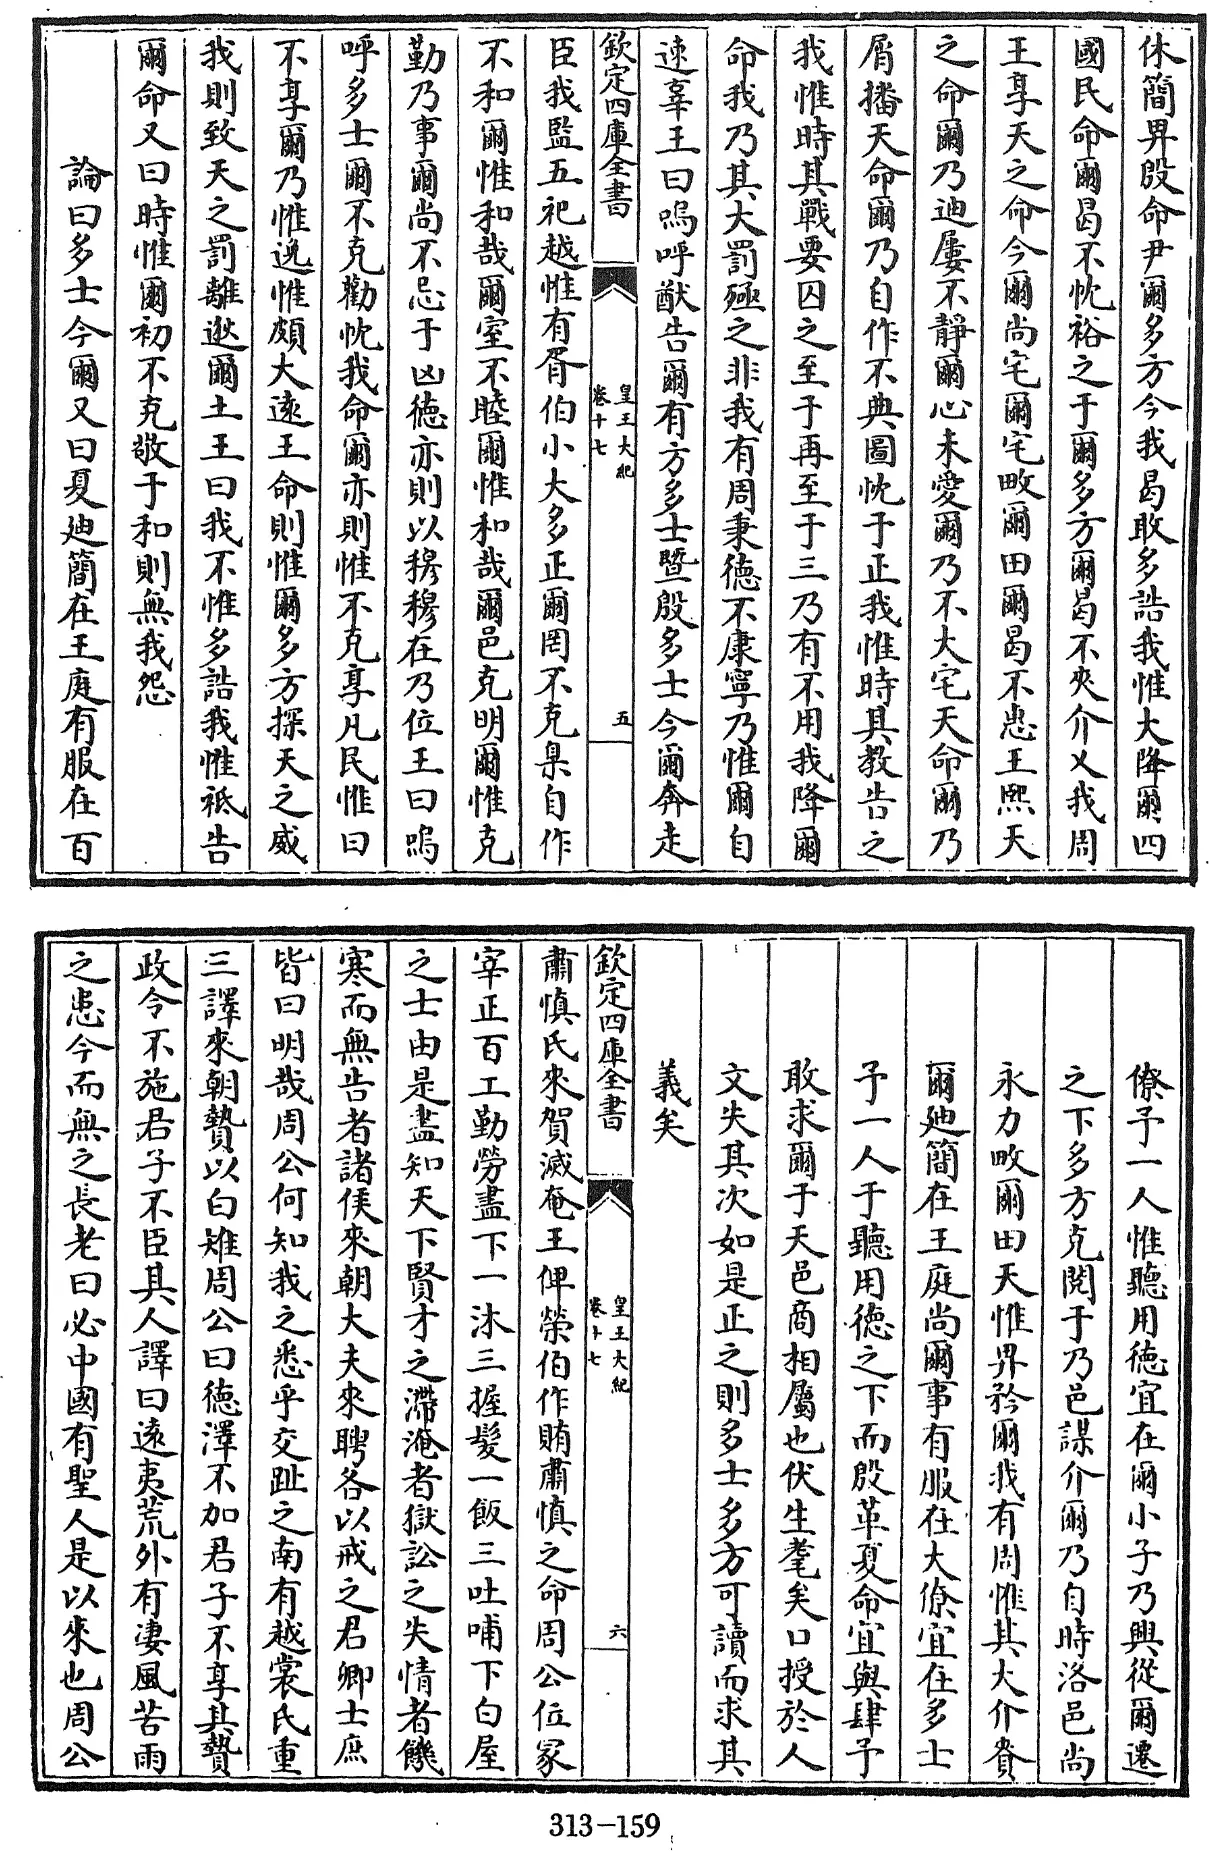 休簡畀殷命尹爾多方今我曷敢多誥我惟大降爾四
國民命爾曷不忱裕之于爾多方爾曷不夾介乂我周
王享天之命今爾尚宅爾宅畋爾田爾曷不惠王熙天
之命爾乃迪屢不靜爾心未愛爾乃不大宅天命爾乃
屑播天命爾乃自作不典圖忱于正我惟時其教告之
我惟時其戰要囚之至于再至于三乃有不用我降爾
命我乃其大罰殛之非我有周秉德不康寧乃惟爾自
速辜王曰嗚呼猷告爾有方多士暨殷多士今爾奔走
欽定四庫全書
皇王大紀
卷十七
五
臣我監五祀越惟有胥伯小大多正爾罔不克臬自作
不和爾惟和哉爾室不睦爾惟和哉爾邑克明爾惟克
勤乃事爾尚不忌于凶德亦則以穆穆在乃位王曰嗚
呼多士爾不克勸忱我命爾亦則惟不克享凡民惟曰
不享爾乃惟逸惟頗大遠王命則惟爾多方探天之威
我則致天之罰離逖爾土王曰我不惟多誥我惟祗告
爾命又曰時惟爾初不克敬于和則無我怨
論曰多士今爾又曰夏迪簡在王庭有服在百
僚予一人惟聽用德宜在爾小子乃興從爾遷
之下多方克閱于乃邑謀介爾乃自時洛邑尚
永力畋爾田天惟畀矜爾我有周惟其大介賚
爾迪簡在王庭尚爾事有服在大僚宜在多士
予一人于聽用德之下而殷革夏命宜與肆予
敢求爾于天邑商相屬也伏生耄矣口授於人
文失其次如是正之則多士多方可讀而求其
義矣
欽定四庫全書
皇王大紀
卷十七
六
肅慎氏來賀滅奄王俾榮伯作賄肅慎之命周公位冢
宰正百工勤勞盡下一沐三握髮一飯三吐哺下白屋
之士由是盡知天下賢才之滯淹者獄訟之失情者饑
寒而無告者諸侯來朝大夫來聘各以戒之君卿士庶
皆曰明哉周公何知我之悉乎交趾之南有越裳氏重
三譯來朝贄以白雉周公曰德澤不加君子不享其贄
政令不施君子不臣其人譯曰遠夷荒外有淒風苦雨
之患今而無之長老曰必中國有聖人是以來也周公
313-159